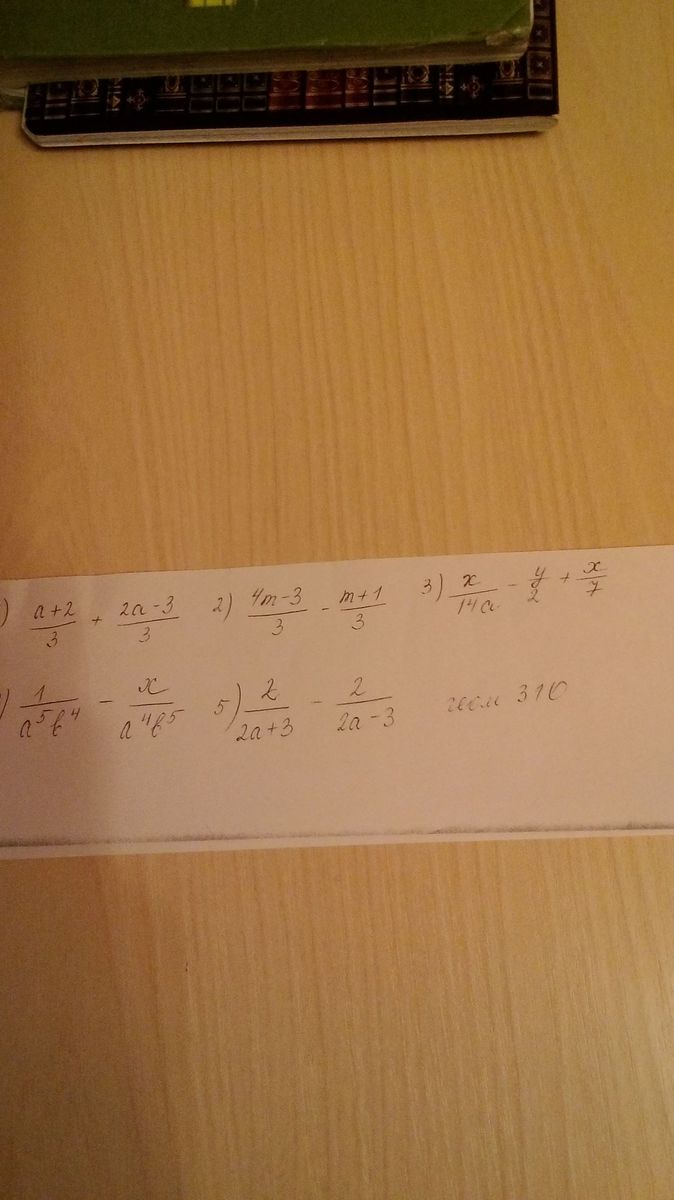 ) a+2/3 + 2a-3/3 2) 4m-3/3 - m+1/3 3) x/14a - y/2 + x/7
) 1/a⁵b⁴ - x/a⁴b⁵ 5) 2/2a+3 - 2/2a-3 геом 310